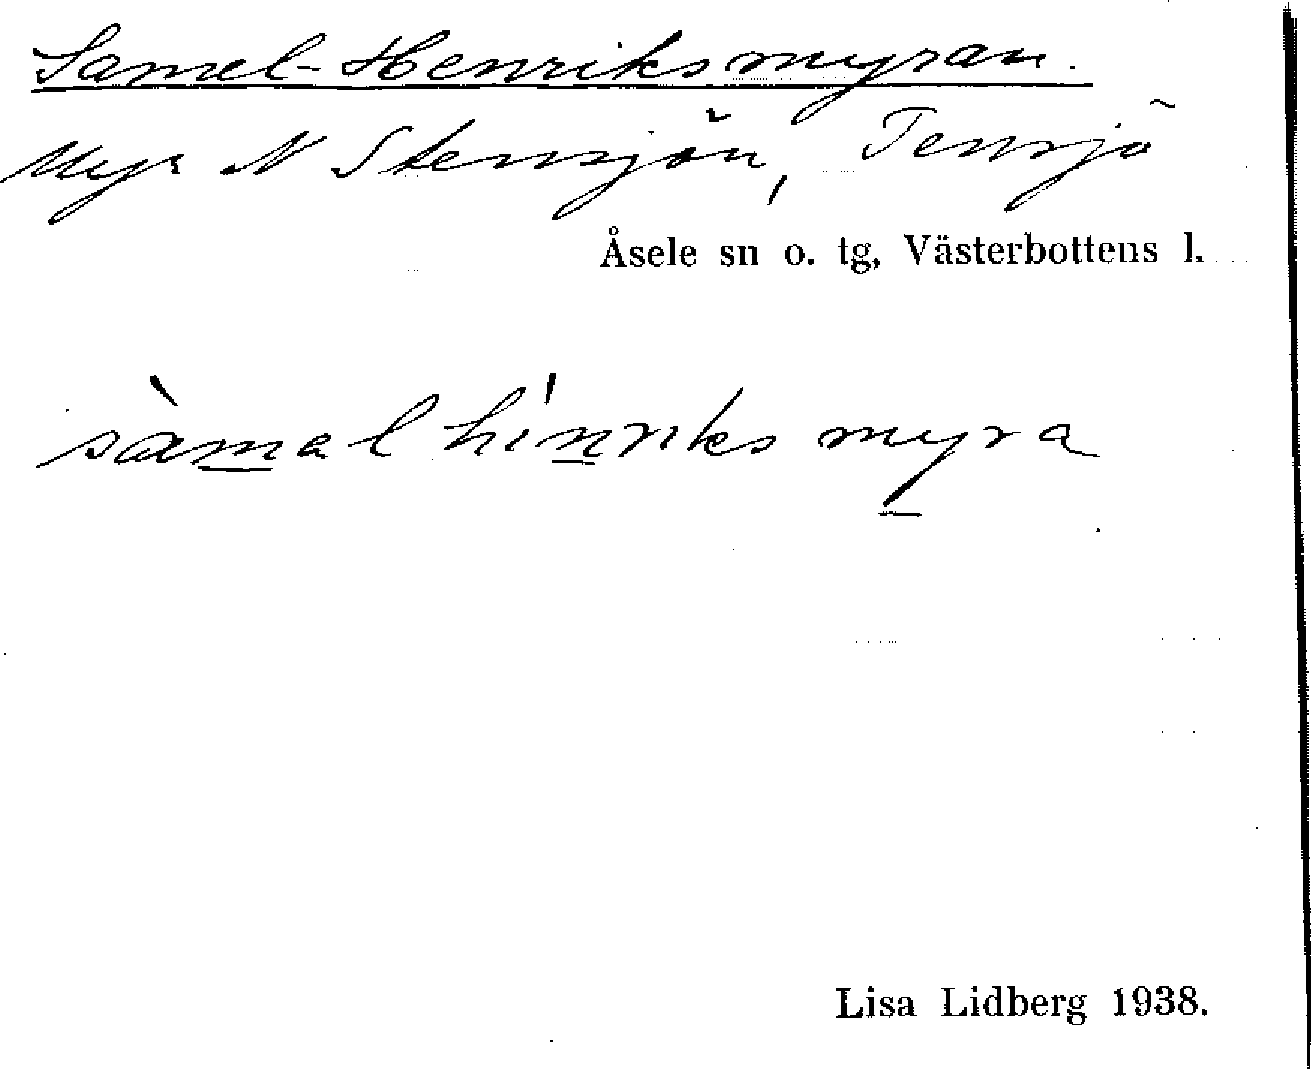 Samel-Henriksmyran.
Myr N Stensjön, Tensjö
Åsele sn o. tg, Västerbottens l.
sàmal hínriks myra
Lisa Lidberg 1938.